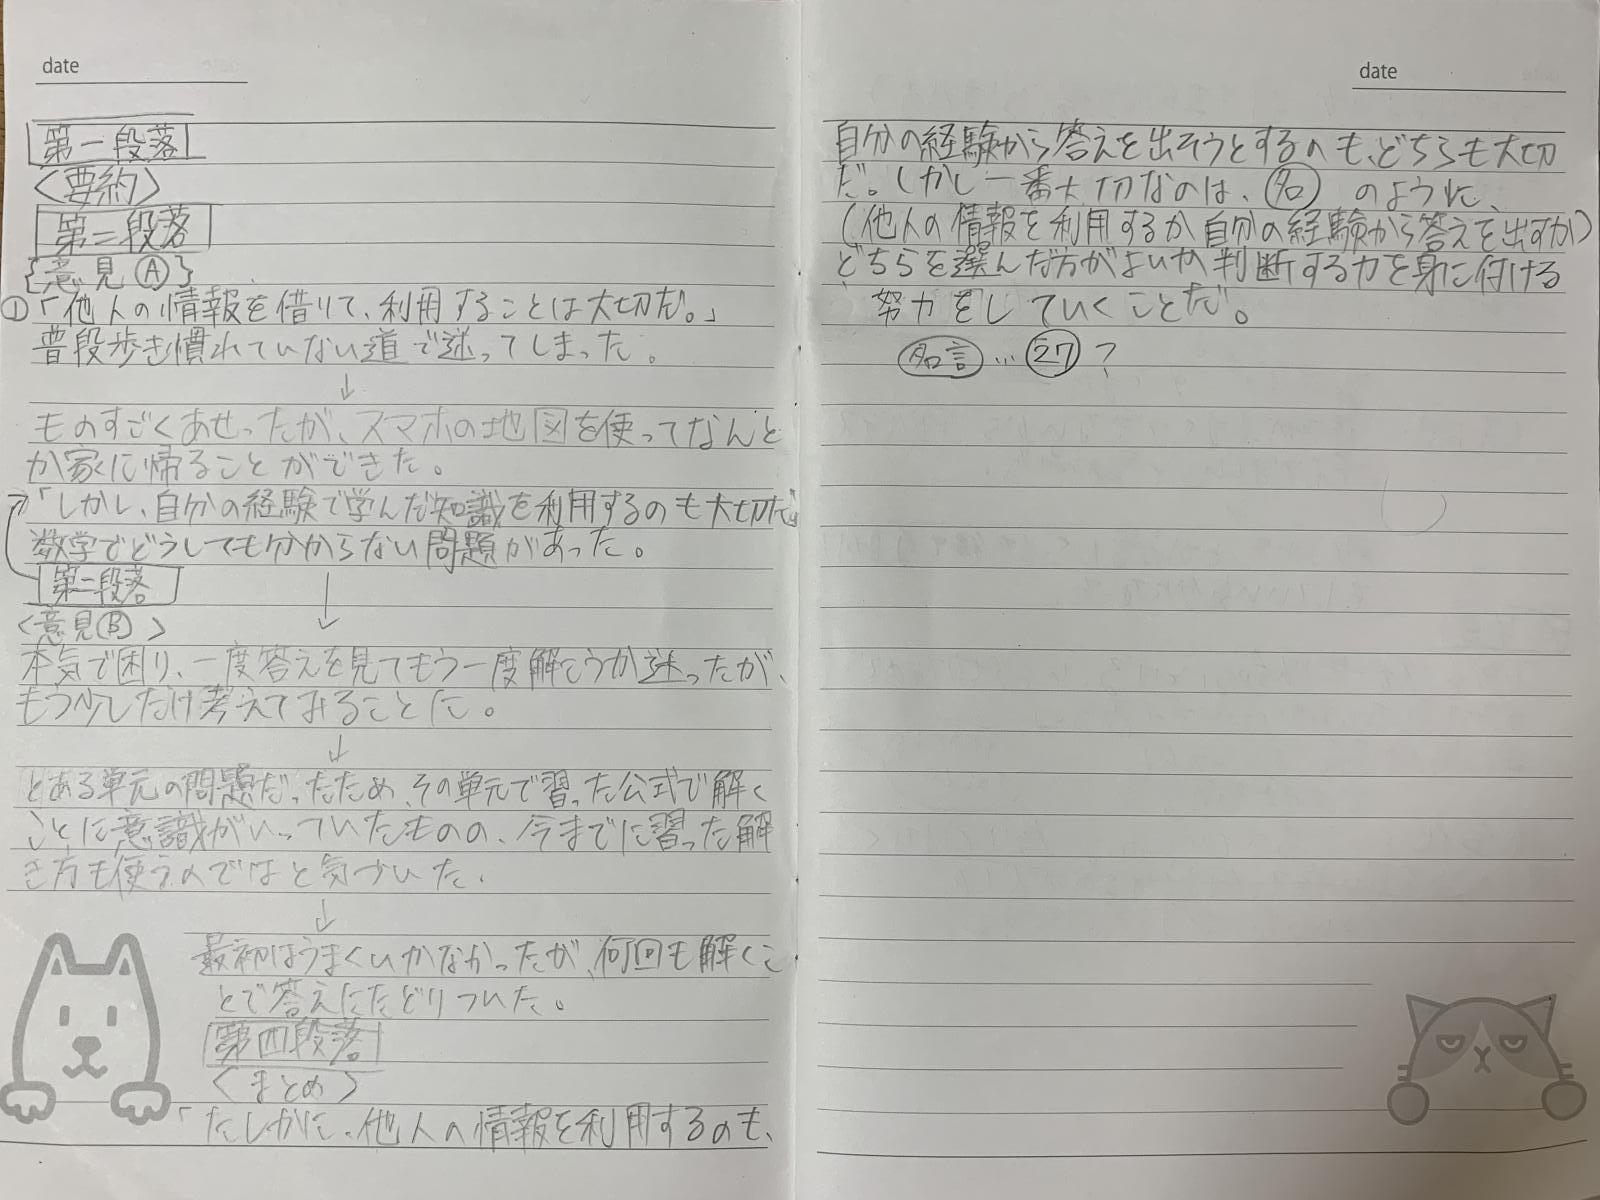 date
第一段落
<要約>
第二段落
{意見Ⓐ}
①「他人の情報を借りて、利用することは大切だ。」
普段歩き慣れていない道で迷ってしまった。
↓
ものすごくあせったが、スマホの地図を使ってなんと
か家に帰ることができた。
「しかし、自分の経験で学んだ知識を利用するのも大切だ」
数学でどうしても分からない問題があった。
第三段落
↓
<意見Ⓑ>
本気で困り、一度答えを見てもう一度解こうか迷ったが、
もう少しだけ考えてみることに。
↓
とある単元の問題だったため、その単元で習った公式で解く
ことに意識がいっていたものの、今までに習った解
き方も使うのではと気づいた。
↓
最初はうまくいかなかったが、何回も解くこ
とで答えにたどりついた。
第四段落
<まとめ>
「たしかに、他人の情報を利用するのも、
date
自分の経験から答えを出そうとするのも、どちらも大切
だ。しかし一番大切なのは、㊔ のように、
(他人の情報を利用するか自分の経験から答えを出すか)
どちらを選んだ方がよいか判断する力を身に付ける
努力をしていくことだ。
名言…㉗?